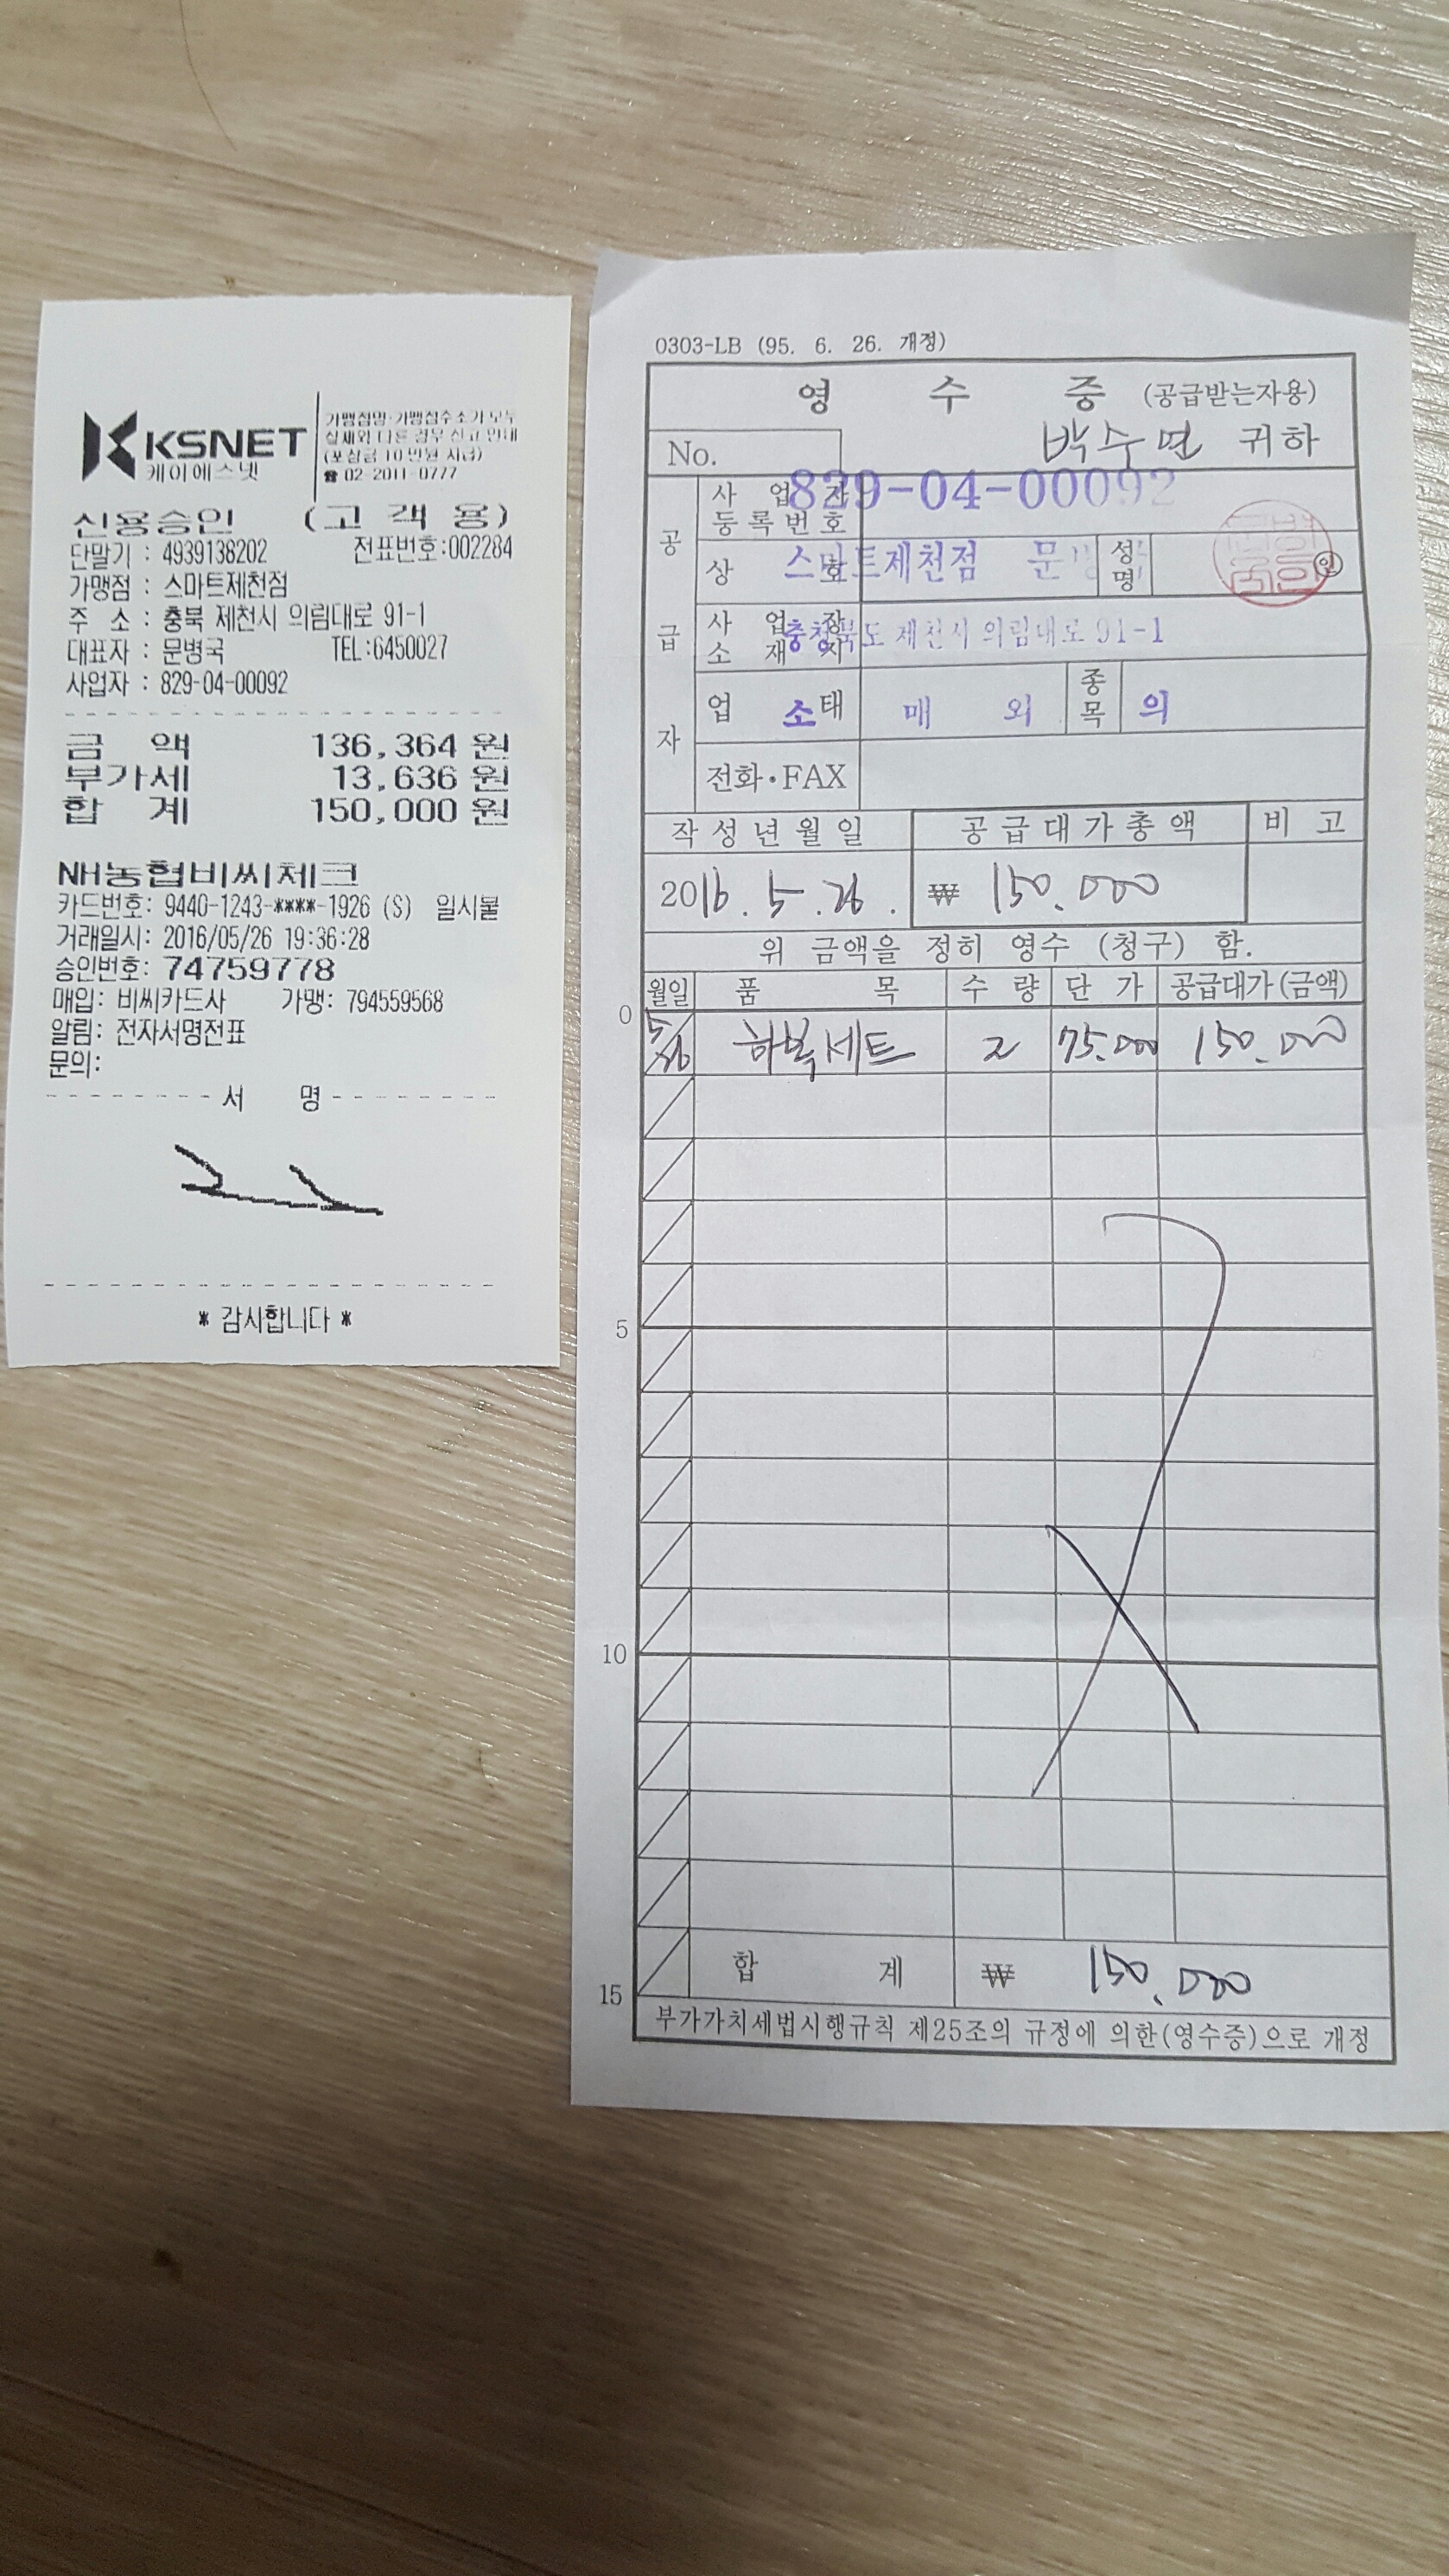 KSNET
케이에스넷
가맹점명·가맹점주소가
실제와 다른 경우 신고 안내
(포상금 10만원 지급)
☎ 02-2011-0777
신용승인 (고 객 용)
단말기 : 4939138202 전표번호:002284
가맹점 : 스마트제천점
주 소 : 충북 제천시 의림대로 91-1
대표자 : 문병국 TEL:6450027
사업자 : 829-04-00092
금 액 136,364 원
부가세 13,636 원
합 계 150,000 원
NH농협비씨체크
카드번호: 9440-1243-****-1926 (S) 일시불
거래일시: 2016/05/26 19:36:28
승인번호: 74759778
매입: 비씨카드사 가맹: 794559568
알림: 전자서명전표
문의:
서 명
* 감사합니다 *
0303-LB (95. 6. 26. 개정)
영 수 증 (공급받는자용)
No. 박수면 귀하
공급자
사업자등록번호 829-04-00092
상 호 스마트제천점 문 성명 인
사업장소재지 충청북도 제천시 의림대로 91-1
업 태 소 매 외 종목 의
전화·FAX
작성년월일 공급대가총액 비고
2016. 5. 26. ₩ 150.000
위 금액을 정히 영수 (청구) 함.
월일 품 목 수 량 단 가 공급대가(금액)
0
5/26 하복세트 2 75.000 150.000
5
10
합 계 ₩ 150.000
15
부가가치세법시행규칙 제25조의 규정에 의한(영수증)으로 개정